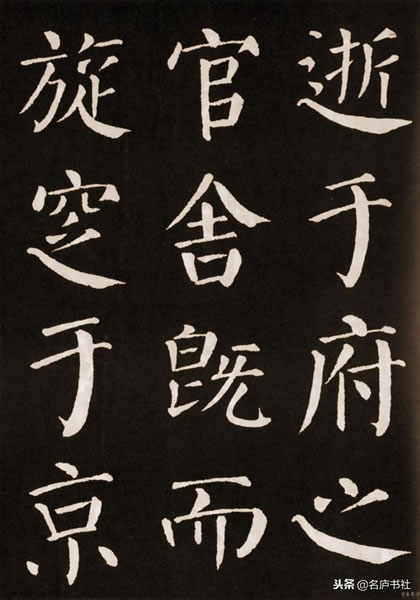 逝于府之
官舍既而
旋窆于京
头条 @名庐书社